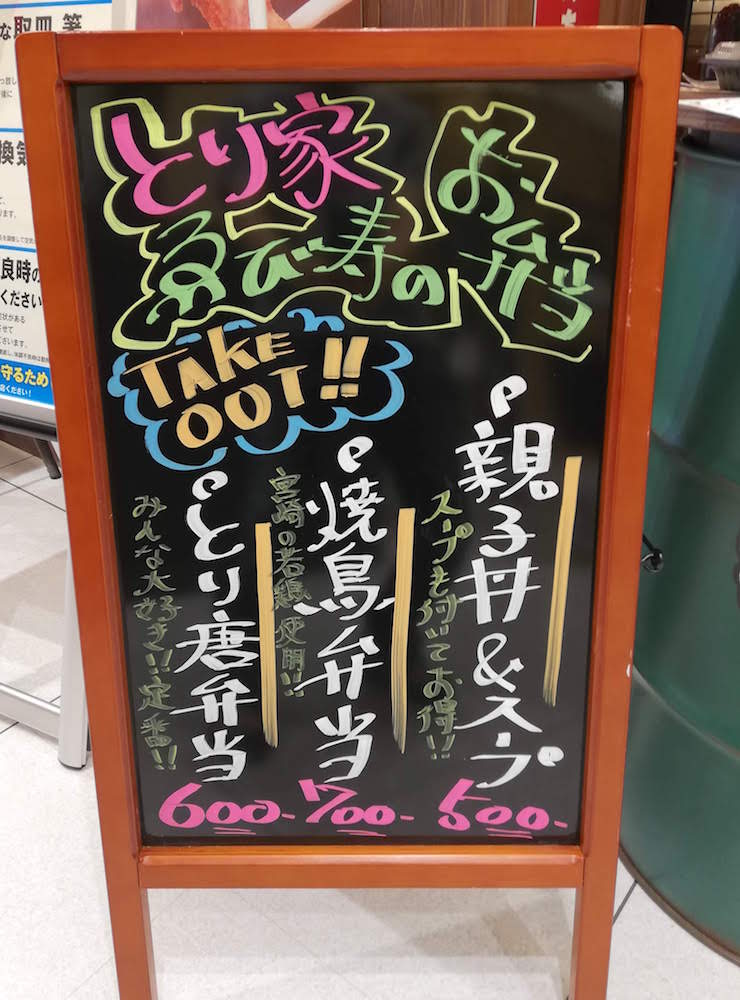 とり家
ゑび寿の
お弁当
TAKE
OUT!!
親子丼&スープ
スープも付いてお得!!
500-
焼鳥弁当
宮崎の若鶏使用!!
700-
とり唐弁当
みんな大好き!!定番!!
600-
な取皿、箸
換気
良時の
ください
守るため
ください!